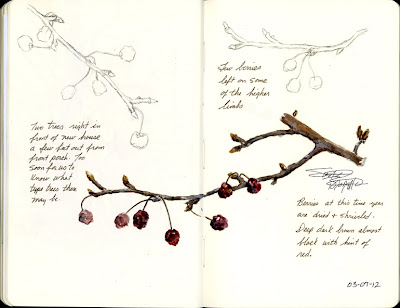 Two trees right in
front of new house
a few feet out from
front porch. Too
soon for us to
know what
type trees they
may be
Few berries
left on some
of the higher
limbs
Berries at this time year
are dried & shriveled.
Deep dark brown almost
black with hint of
red.
03-07-12